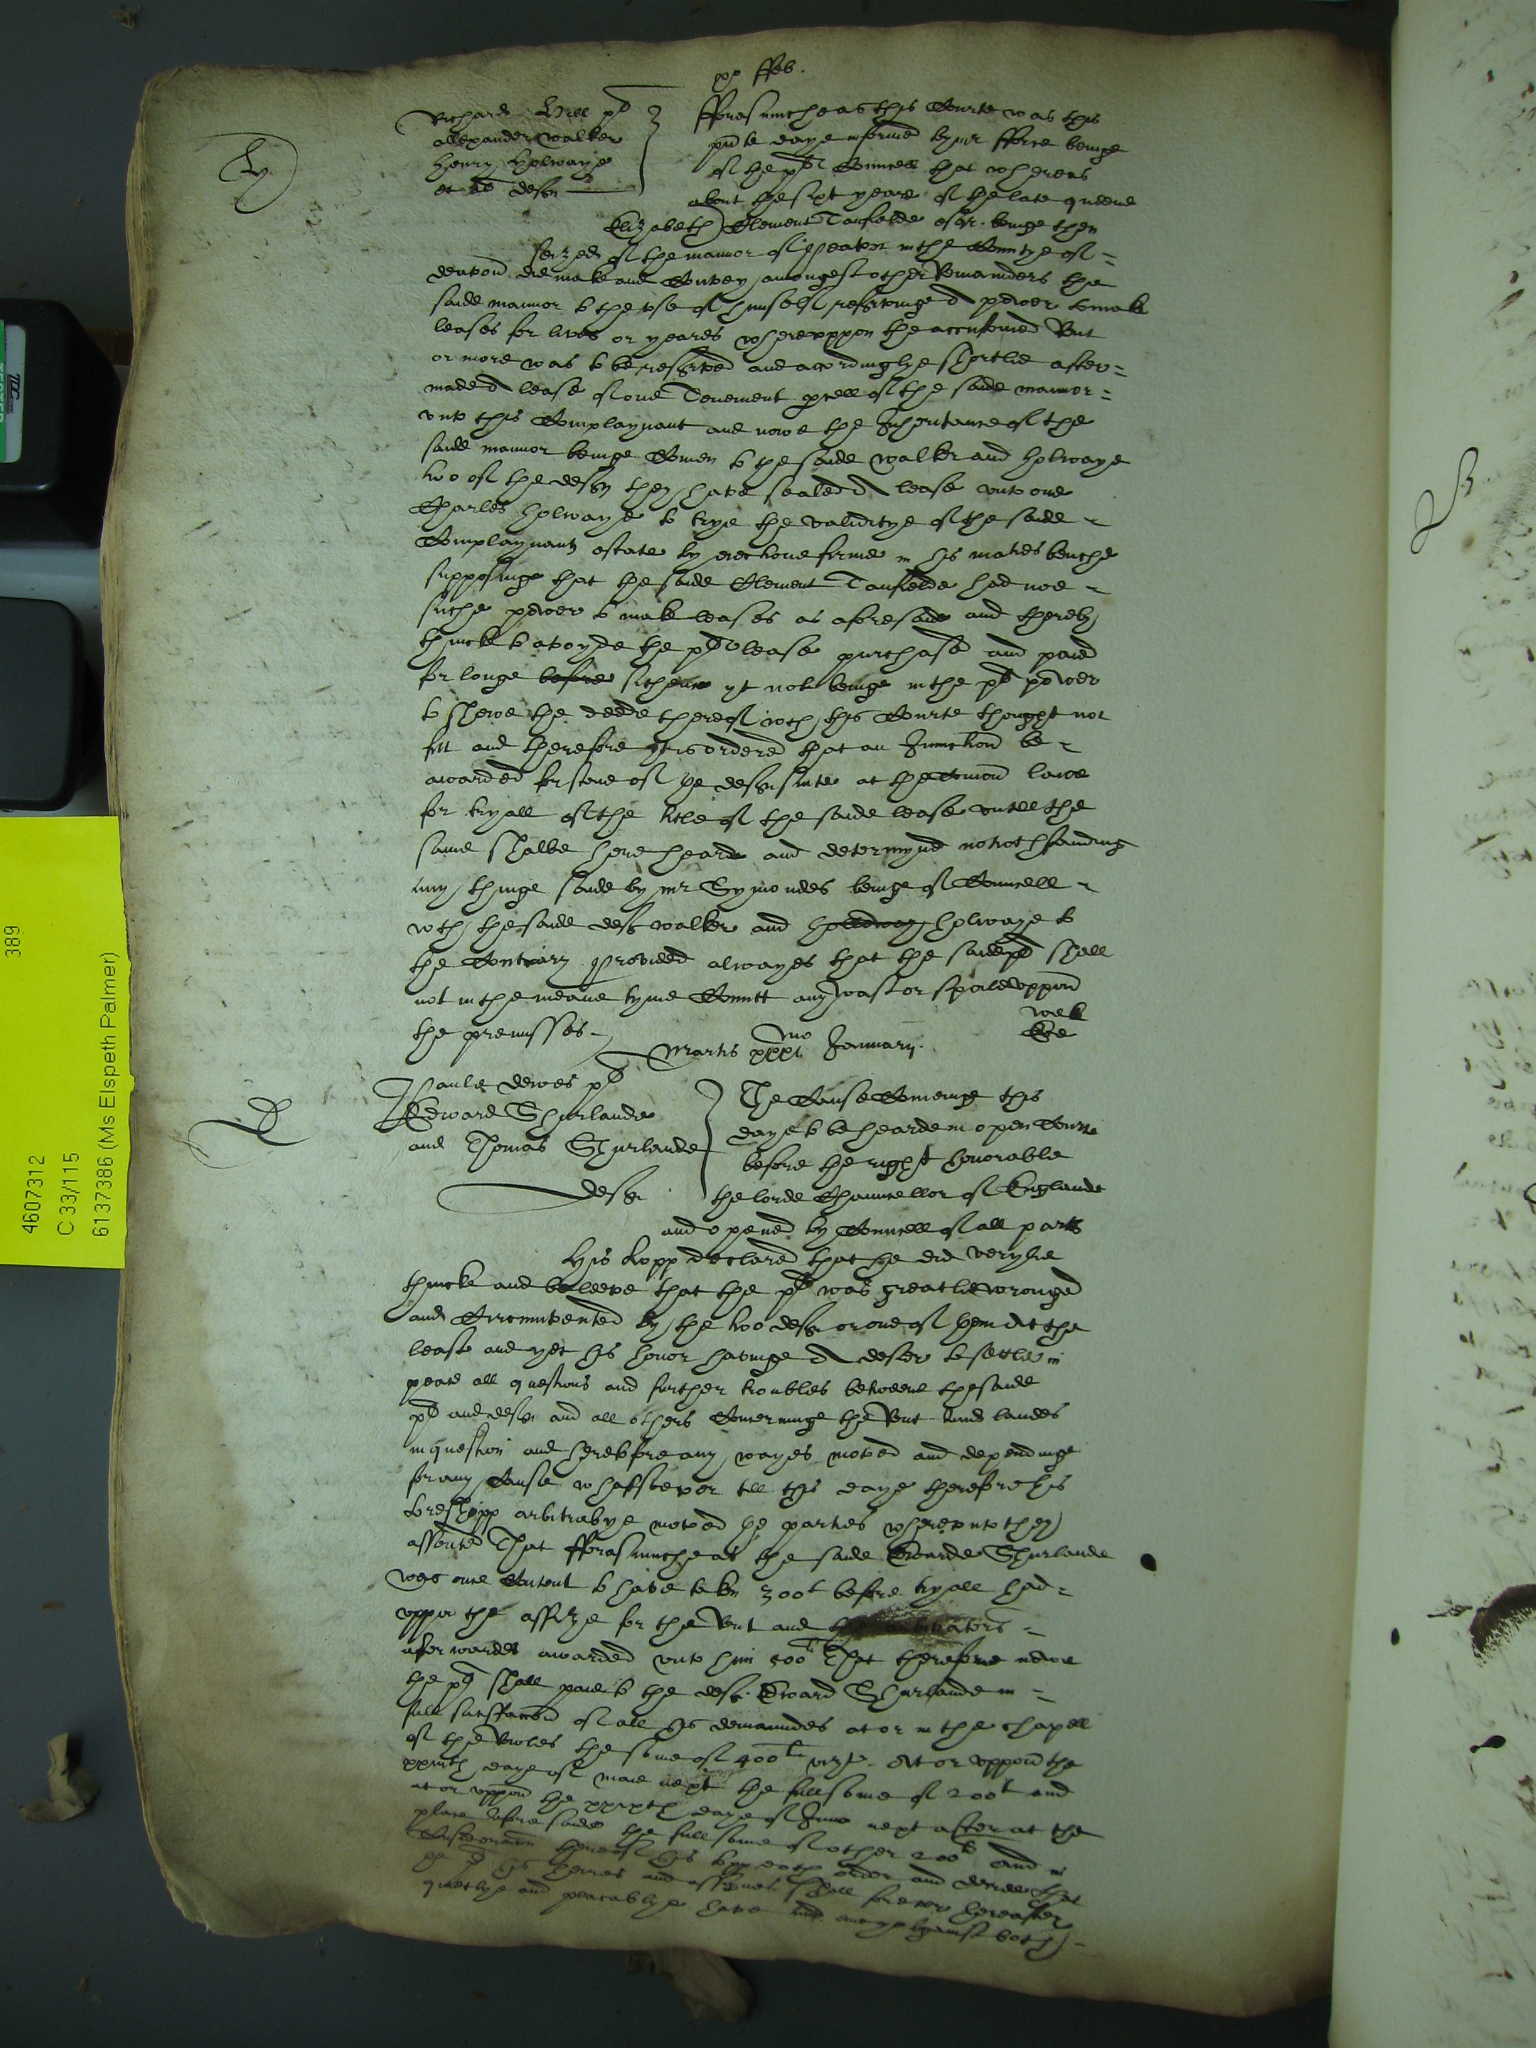 xo ffeb.
Richard Hill pl
Allexander Walker
Henry Holwaye
et al defts
fforasmuche as this Courte was this
pnte daye informed by mr fforte beinge
of the pls Councell that whereas
about the sixt yeare of the late queene
Elizabeth Clement Tanfielde esqr. beinge then
seized of the mannor of in the Countye of
devon did make and Convey amongest other Remainders the
saide mannor to the use of himself reservinge a power to make
leases for lives or yeares whereuppon the accustomed Rent
or more was to be reserved and accordinglye shortlie after
made a lease of one Tenement pcell of the saide mannor
unto this Complaynant and nowe the Inheritance of the
saide mannor beinge Comen to the saide Walker and Holwaye
two of the defts they have sealed a lease unto one
Charles Holwaye to trye the validitye of the saide
Complaynants estate by eiectione firme in his maties benche
supposinge that the saide Clement Tanfielde had noe
suche power to make leases as aforesaide and thereby
thincke to avoyde the pls lease purchased and paied
for longe before sithence yt not beinge in the pls power
to shewe the deede thereof wch this Courte thought not
fitt and therefore yt is ordered that an Iniunction be
awarded for staie of the defts suite at the Comon lawe
for tryall of the title of the saide lease untill the
same shalbe here heard and determyned notwthstanding
any thinge saide by mr Symondes beinge of Councell
wth the saide defts Walker and Holloway Holwaye to
the Contrary Provided alwayes that the saide pl shall
not in the meane tyme Comitt any wast or spoile uppon
the premisses
Martis xxxmo January
Paule dewes pl
Edward Shurlande
and Thomas Shurlande
defts
The Cause Cominge this
daye to be hearde in open Courte
before the right honorable
the lorde Chauncellor of Englande
and opened by Councell of all parts
His lopp declared that he did verylie
thincke and beleeve that the pl was greatlie wronged
and Circumvented by the two defts or one of them att the
least and yet his honor havinge a desier to settle in
peace all questions and further troubles betweene the saide
pl and defts and all others Concerninge the Rent and landes
in question and heretofore any wayes moved and dependinge
for any Cause whatsoever till this daye therefore his
lordshipp arbitrablye moved the parties whereunto they
assented That fforasmuche as the saide Edwarde Shurlande
was once Content to have taken 300l before tryall had
uppon the assize for the Rent and the arbitrators
afterwardes awarded unto him 500l That therefore nowe
the pl shall paie to the deft Edward Shurlande in
full satisfaccon of all his demaundes at or in the chapell
of the Rolles the some of 400l vizt. At or uppon the
daye of maie next the full some of 200l and
at or uppon the daye of June next after at the
place aforesaide the full some of other 200l and in
Consideracon thereof his lopp doth order and decree that
the pl his heires and assignes shall for ever hereafter
quietlye and peaceablye have and enioye against both
4607312
C 33/115
389
6137386 (Ms Elspeth Palmer)